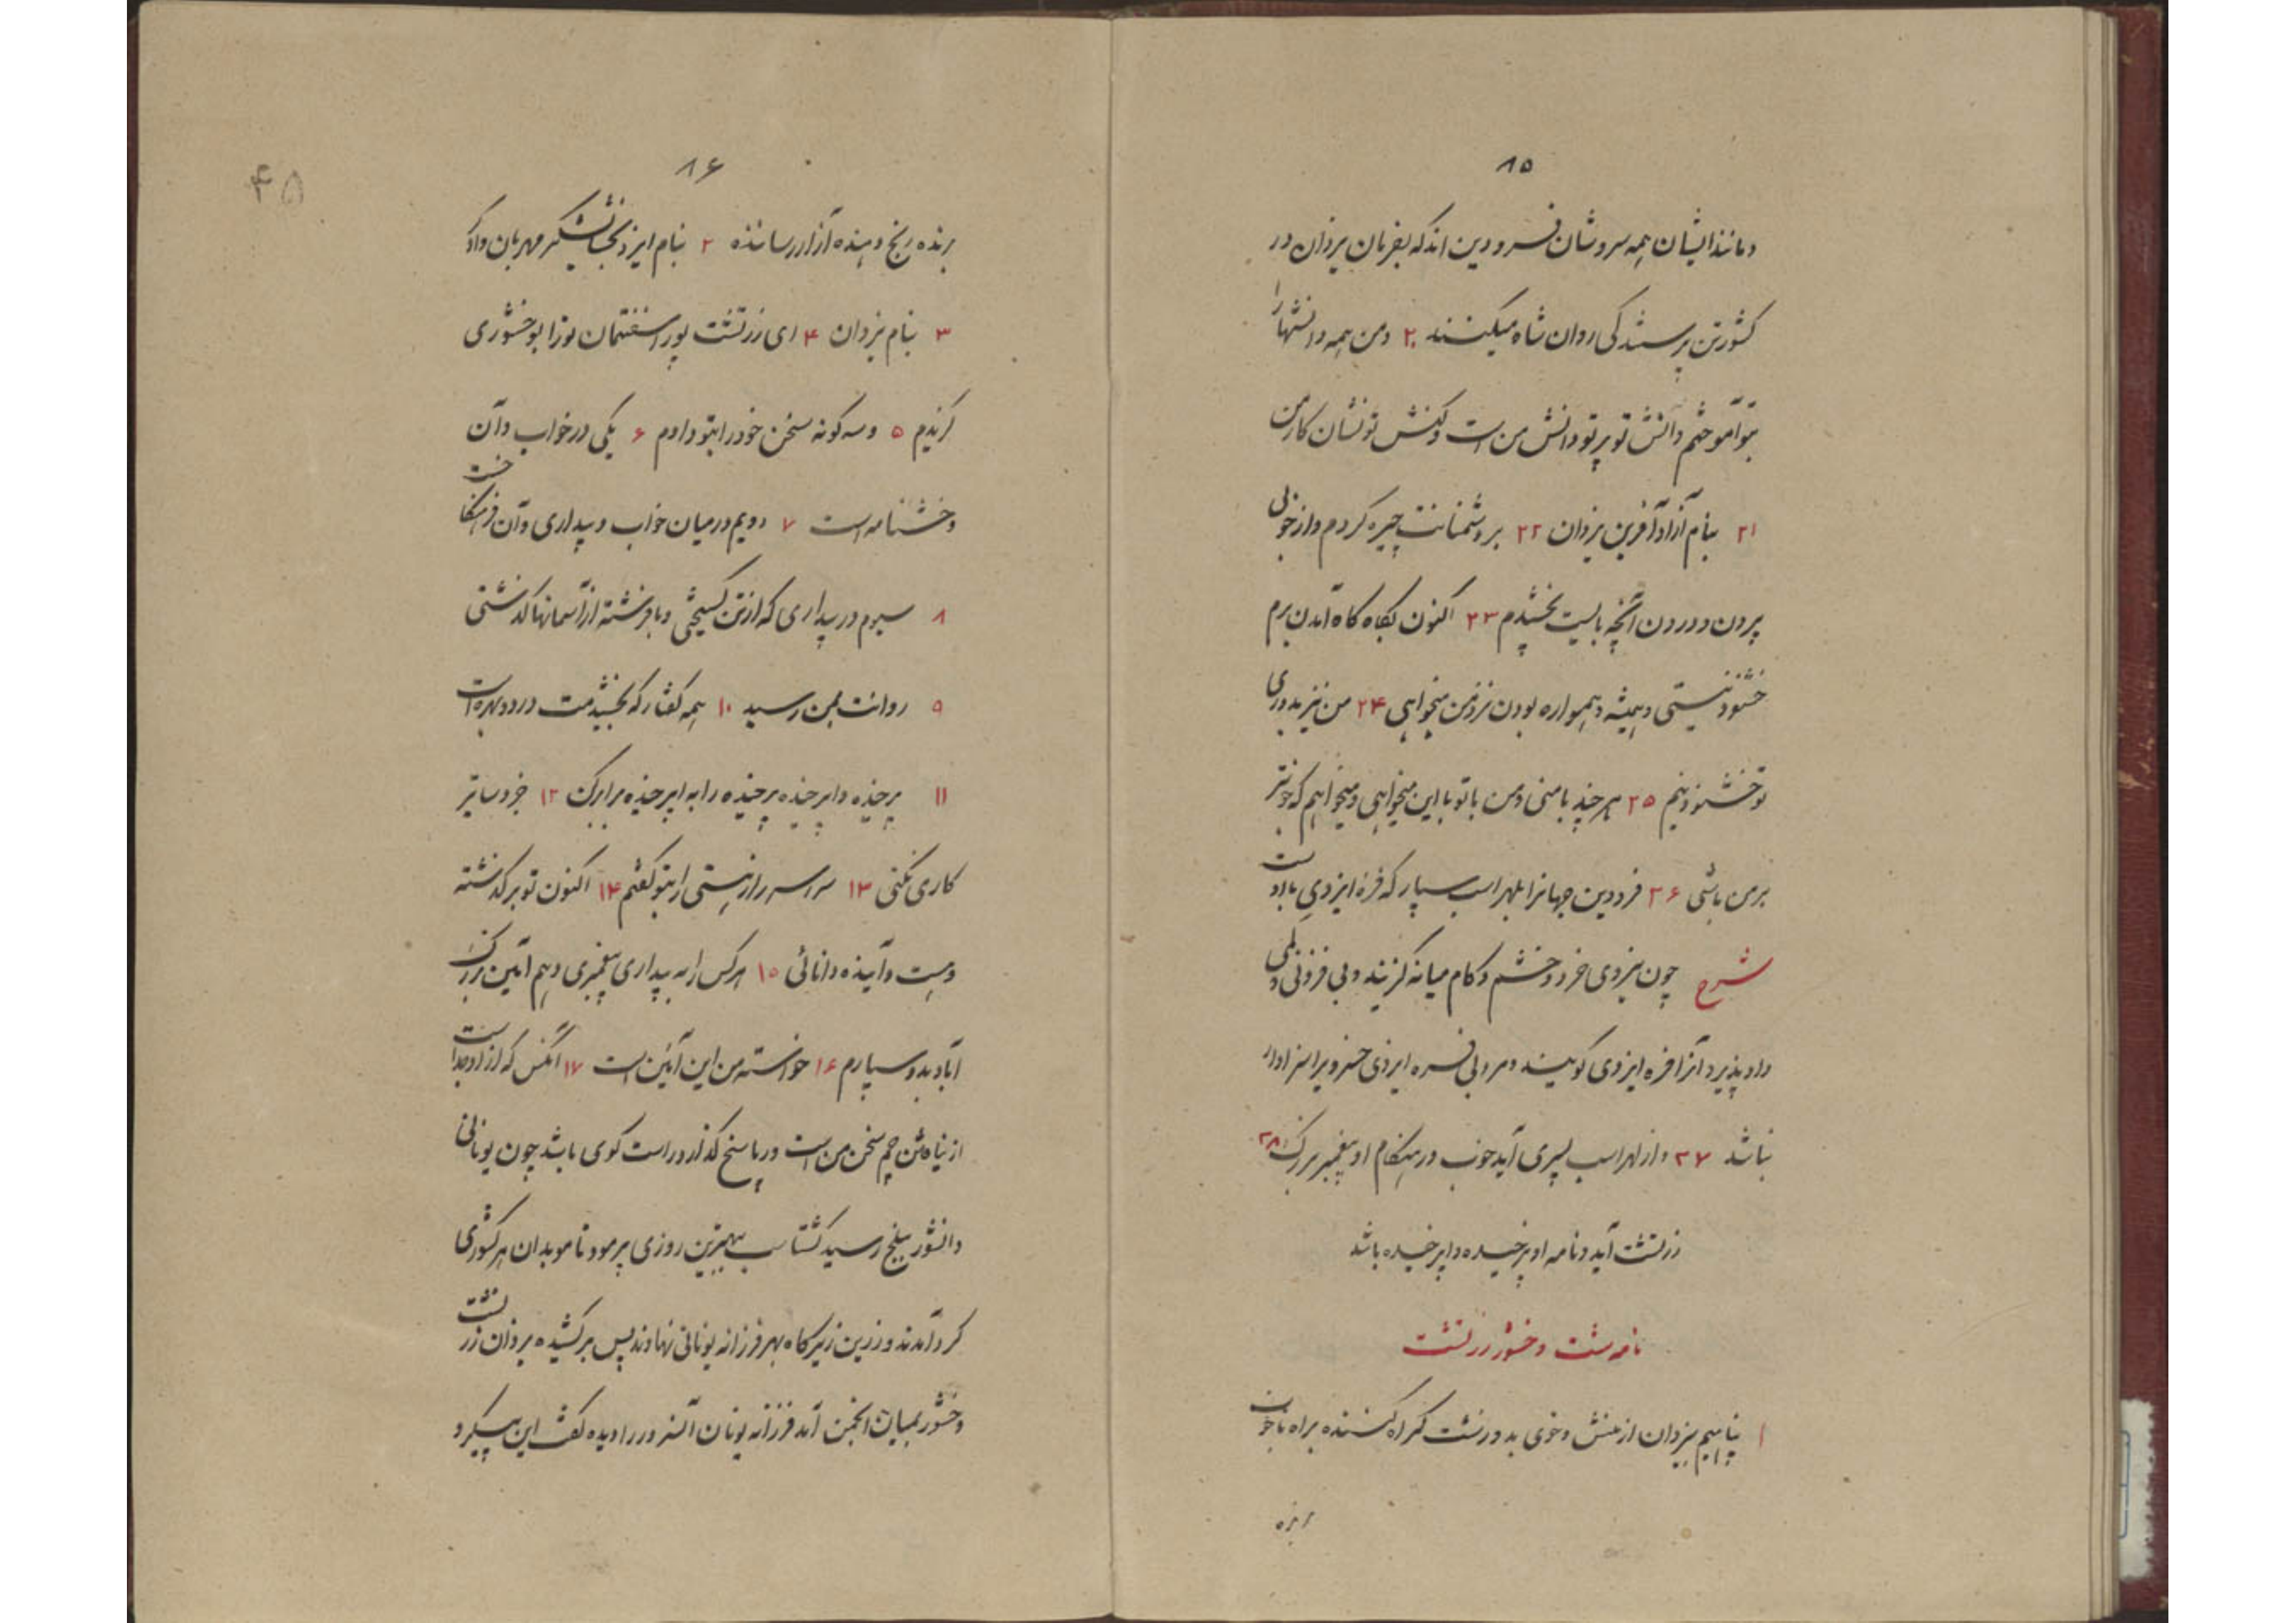 ۸۵
و مانند ایشان همه سروشان فرودین اند که بفرمان یزدان در
کشور تن پرستندگی روان شاه میکنند ۲۰ و من همه دانشها را
بتو آموختم دانش تو پرتو دانش من است و کنش تو نشان کار من
۲۱ بنام آزاد آفرین یزدان ۲۲ بر دشمنانت چیره کردم و از خوبی
بیرون و درون آنچه بایست بخشیدم ۲۳ اکنون بگاه گاه آمدن برم
خشنود نیستی و همیشه و همواره بودن نزد من میخواهی ۲۴ من نیز بدوری
تو خشنود نیم ۲۵ هر چند با منی و من با تو با این میخواهی و میخواهم که نزدیکتر
بر من باشی ۲۶ فرودین جهانرا بلهراسب سپار که فره ایزدی با او است
شرح چون نیروی خرد و خشم و کام میانه گزیند و بی فزونی و کمی
داد پذیرد آنرا فره ایزدی گویند و مرد بی فره ایزدی خسرو یرا سزاوار
نباشد ۲۷ و از لهراسب پسری آید خوب و در هنگام او پیغمبر بزرگ ۲۸
زرتشت آید و نامه او پرخیده و اپرخیده باشد
نامه شت وخشور زرتشت
۱ پناهیم بیزدان از منش و خوی بد و زشت گمراه کننده براه ناخوب
برنده
۸۶
۴۵
برنده رنج دهنده آزار رساننده ۲ بنام ایزد بخشایشگر مهربان دادگر
۳ بنام یزدان ۴ ای زرتشت پور اسفنتمان تو را بوخشوری
گزیدم ۵ و سه گونه سخن خود را بتو دادم ۶ یکی در خواب و آن
وخشنامه است ۷ دویم در میان خواب و بیداری و آن فرهنگاخست
۸ سیوم در بیداری که از تن گسیختی و با فرشته از آسمانها گذشتی
۹ روانت بمن رسید ۱۰ همه گفتار که بخشیدمت در دو بهره است
۱۱ پرخیده و اپرخیده پرخیده را به اپرخیده برابر کن ۱۲ جز دساتیر
کاری نکنی ۱۳ سراسر راز هستی را بتو گفتم ۱۴ اکنون تو بر گذشته
و هست و آینده دانائی ۱۵ هر کس را به بیداری پیغمبری دهم آئین بزرگ
آباد بدو سپارم ۱۶ خواسته من این آئین است ۱۷ آنکس که از او جدا است
از نیاه من چم سخن من است و در پاسخ گذارد راست گوی باشد چون یونانی
دانشور ببلخ رسید گشتاسب بهترین روزی پرمود تا موبدان هر کشوری
گرد آمدند و زرین زیرگاه بهر فرزانه یونانی نهادند پس برکشیده یزدان زرتشت
وخشور بمیان انجمن آمد فرزانه یونان آنسرور را دیده گفت این پیکر و